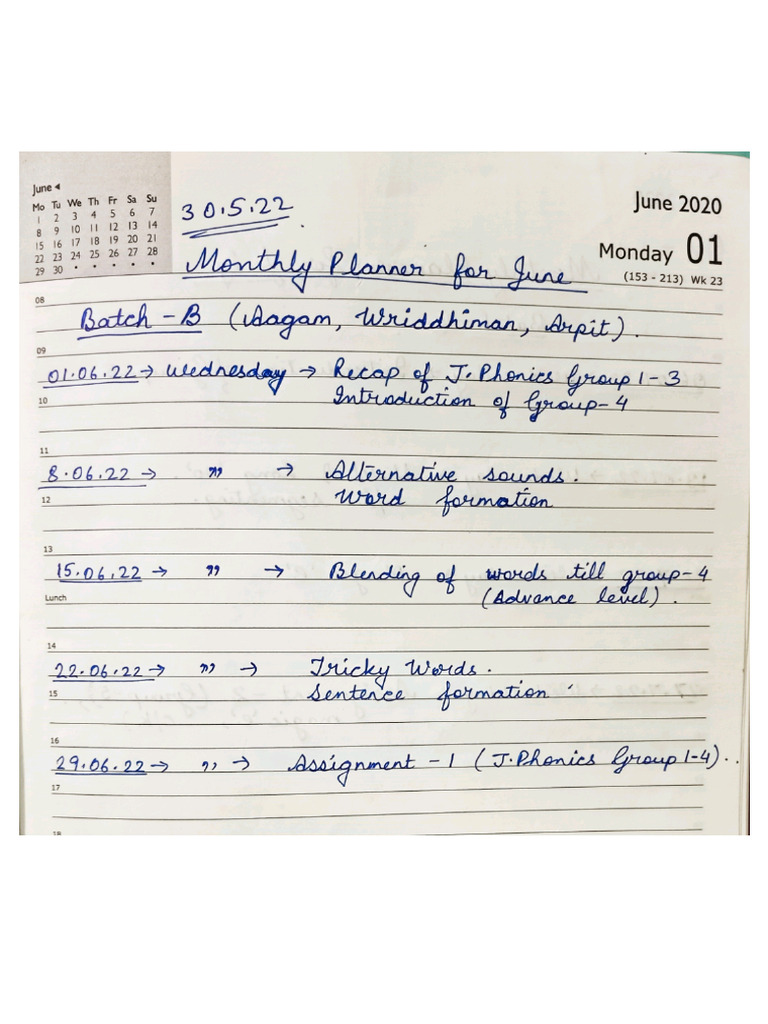 June ◄
Mo Tu We Th Fr Sa Su
1 2 3 4 5 6 7
8 9 10 11 12 13 14
15 16 17 18 19 20 21
22 23 24 25 26 27 28
29 30 • • • • •
30.5.22
June 2020
Monday 01
(153 - 213) Wk 23
Monthly Planner for June
08
Batch - B (Aagam, Wriddhiman, Arpit).
09
01.06.22 → Wednesday → Recap of J.Phonics Group 1-3
10
Introduction of Group-4
11
8.06.22 → " → Alternative sounds.
12
Word formation
13
15.06.22 → " → Blending of words till group-4
Lunch
(Advance level).
14
22.06.22 → " → Tricky Words.
15
Sentence formation
16
29.06.22 → " → Assignment - 1 (J.Phonics Group 1-4)..
17
18